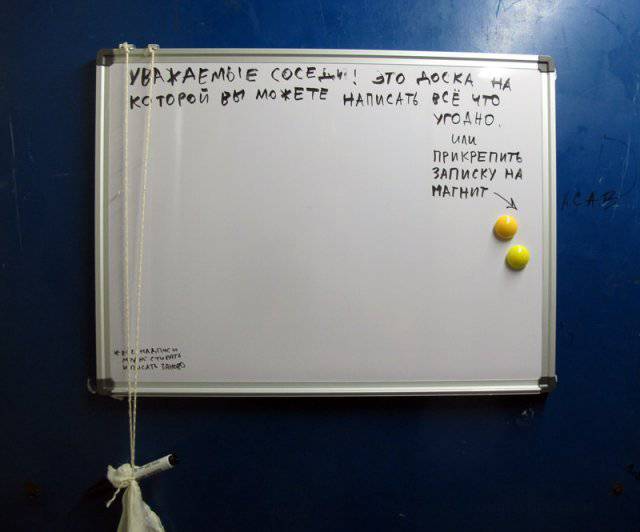 УВАЖАЕМЫЕ СОСЕДИ! ЭТО ДОСКА НА
КОТОРОЙ ВЫ МОЖЕТЕ НАПИСАТЬ ВСЁ ЧТО
УГОДНО.
ИЛИ
ПРИКРЕПИТЬ
ЗАПИСКУ НА
МАГНИТ
НАДПИСИ
СТИРАТЬ
ПИСАТЬ ЗАНОВО